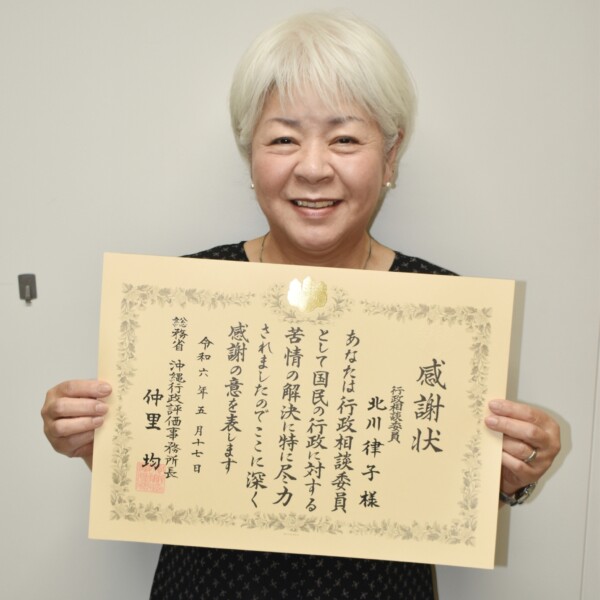 感謝状
行政相談委員
北川律子様
あなたは行政相談委員
として国民の行政に対する
苦情の解決に特に尽力
されましたのでここに深く
感謝の意を表します
令和六年五月十七日
総務省 沖縄行政評価事務所長
仲里均